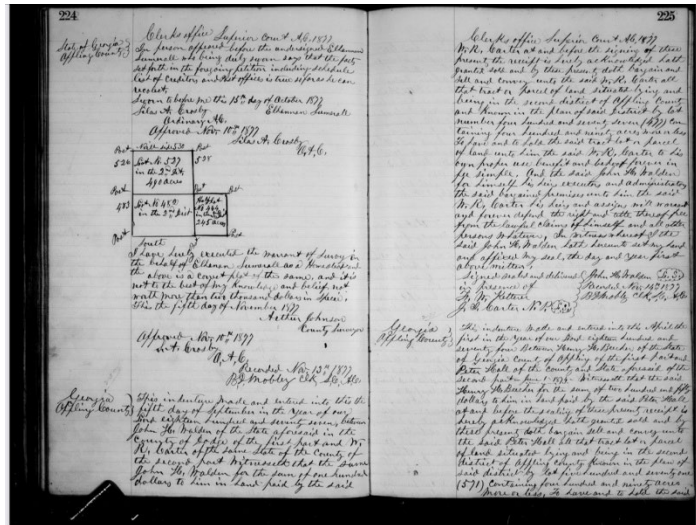 224
Clerks office Superior Court A.C. 1877
State of Georgia
Appling County
In person appeared before the undersigned Elhannon
Sumerall who being duly sworn says that the facts
set forth in the foregoing petition including schedule
list of creditors and Post offices is true so far as he can
recolect.
Sworn to before me this 15th day of October 1877
Silas A. Crosby Elhannon Sumerall
Ordinary A.C.
Approved Nov. 10th 1877
Silas A. Crosby
O. A. C.
Post
Post
526
Lot No 527
in the 2nd Dist
490 acres
528
Post
Post
Post
483
Lot No 482
in the 2nd Dist
Half Lot
in the 2nd Dist
245 acres
Post
Post
South
I have surely executed the warrant of survey in
the behalf of Elhanen Sumerall as a Homestead and
the above is a correct plat of the same, and it is
not to the best of my knowledge and belief, not
worth more than two thousand dollars in specie.
This the fifth day of November 1877
Arthur Johnson
County Surveyor
Approved Nov 10th 1877
S. A. Crosby
O. A. C.
Recorded Nov. 13th 1877
B J Mobley Clk
Georgia
Appling County
This indenture made and entered into this the
fifth day of September in the year of our
Lord eighteen hundred and seventy seven between
John H. Walden of the State aforesaid in the
County of Dodge of the first part and W.
R. Carter of the same State of the County of
the second part Witnesseth that the said
John H. Walden for the sum of one hundred
dollars to him in hand paid by the said
225
Clerks office Superior Court A.C. 1877
W. R. Carter at and before the signing of these
present, the receipt is surely acknowledged hath
granted sold and by these present doth bargain and
sell and convey unto the said W. R. Carter all
that tract or parcel of land situated lying and
being in the second district of Appling County
and known in the plan of said district by lot
number four hundred and seventy seven (477) con
taining four hundred and ninety acres more or less
To have and to hold the said tract lot or parcel
of land unto him the said W. R. Carter to his
own proper use benefit and behoof forever in
fee simple. And the said John H. Walden
for himself his heirs executors and administrators
the said bargained premises unto him the said
W. R. Carter his heirs and assigns will warrant
and forever defend the right and title thereof free
from the lawful claims of himself and all other
persons whatever, In witness whereof I the
said John H. Walden hath hereunto set my hand
and affixed my seal, the day and year first
above written.
Signed sealed and delivered John H. Walden
in presence of Recorded Nov. 14th 1877
B J Mobley Clk
J. H. Carter N.P.
Georgia
Appling County
This indenture made and entered into this April the
first in the year of our Lord eighteen hundred and
seventy four Between Henry H. Beecher of the State
of Georgia County of Appling of the first part and
Peter Hall of the county and State aforesaid of the
second part Witnesseth that the said
Henry H. Beecher for the sum of two hundred and fifty
dollars to him in hand paid by the said Peter Hall
at and before the sealing of these present receipt is
surely acknowledged hath granted sold and by
these present doth bargain sell and convey unto
the said Peter Hall all that tract lot or parcel
of land situated lying and being in the second
district of Appling County known in the plan of
said district by lot five hundred and seventy one
(571) containing four hundred and ninety acres
more or less, To have and to hold the said